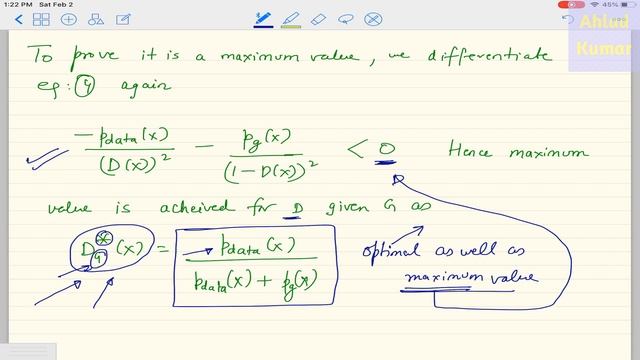 1:22 PM Sat Feb 2
45%
Ahlad
Kumar
To prove it is a maximum value, we differentiate
eq: (4) again
-pdata(x) / (D(x))² - pg(x) / (1-D(x))² < 0 Hence maximum
value is acheived for D given G as
D*G(x) = pdata(x) / pdata(x) + pg(x)
optimal as well as
maximum value